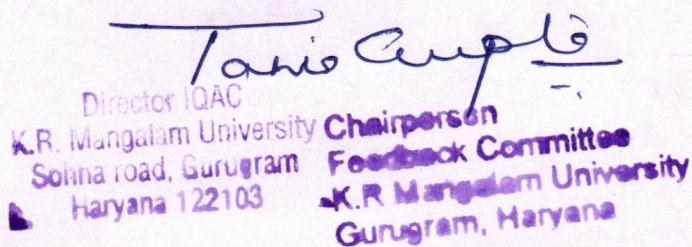 Tania Gupta
Director IQAC
K.R. Mangalam University
Sohna road, Gurugram
Haryana 122103
Chairperson
Feedback Committee
K.R Mangalam University
Gurugram, Haryana